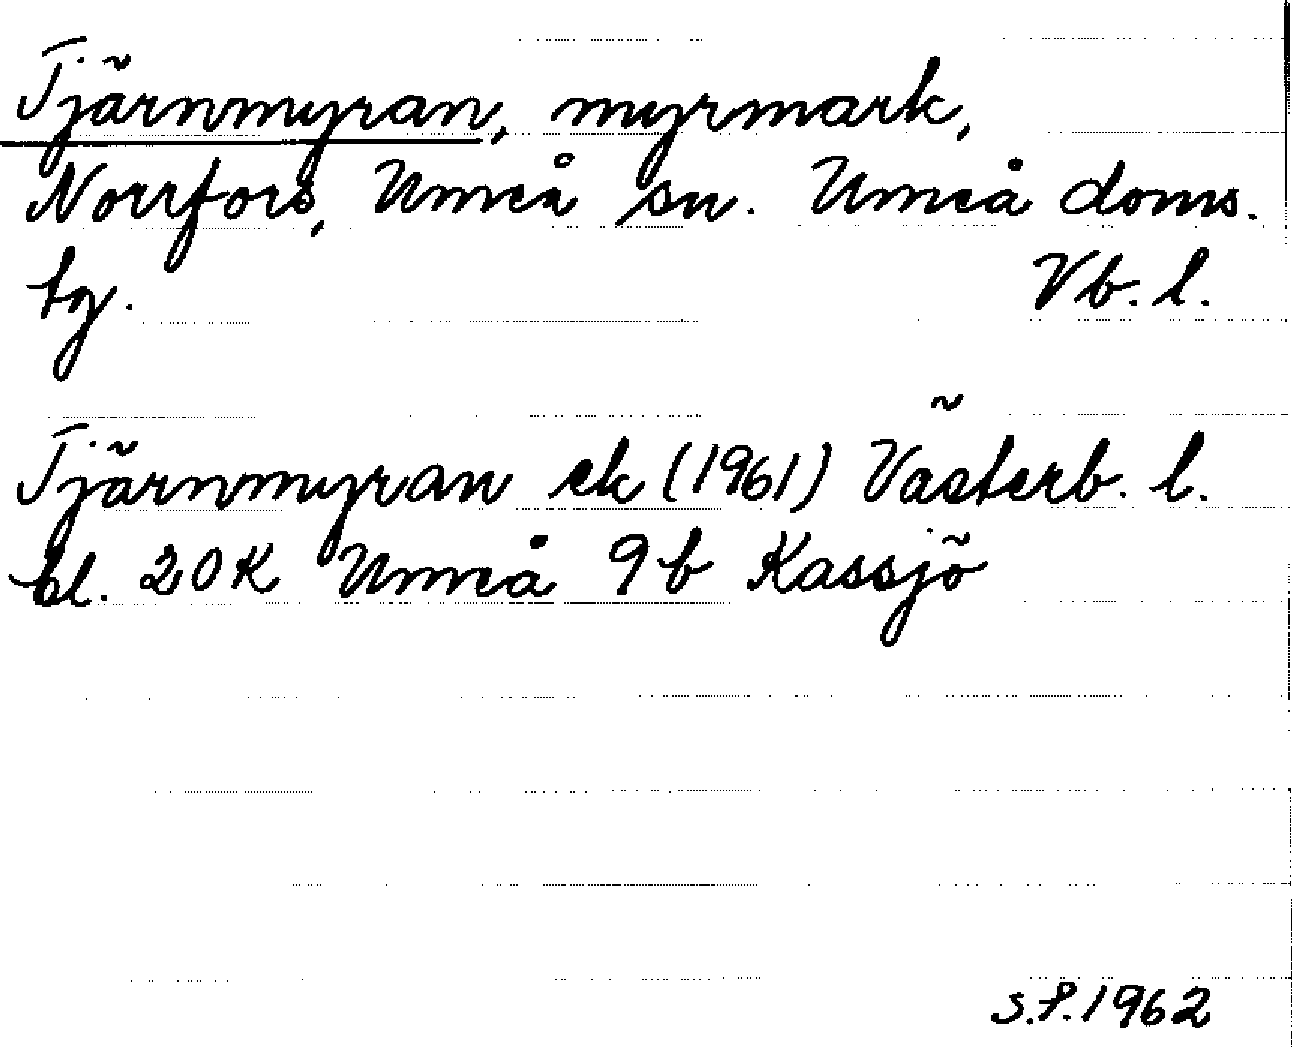 Tjärnmyran, myrmark,
Norrfors, Umeå sn. Umeå doms.
tg. Vb. l.
Tjärnmyran ek (1961) Västerb. l.
bl. 20K Umeå 9b Kassjö
S.P. 1962